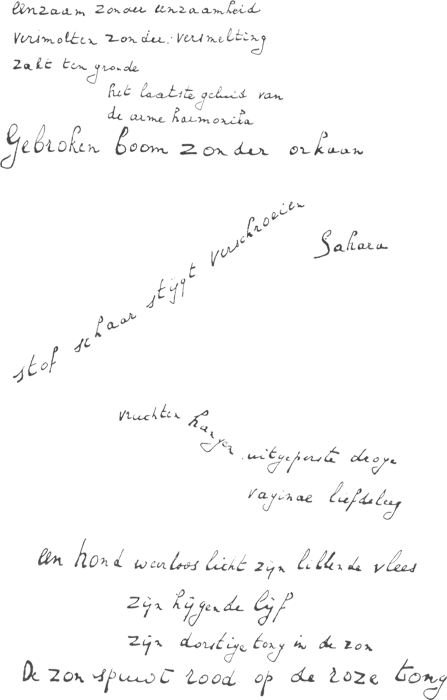 eenzaam zonder eenzaamheid
versmolten zonder versmelting
zakt ten gronde
het laatste geluid van
de arme harmonika
Gebroken boom zonder orkaan
stof schaar stijgt verschroeien
Sahara
vruchten hangen uitgeperste droge
vaginae liefdeleeg
een hond weerloos licht zijn lillende vlees
zijn hijgende lijf
zijn dorstige tong in de zon
De zon spuwt rood op de roze tong